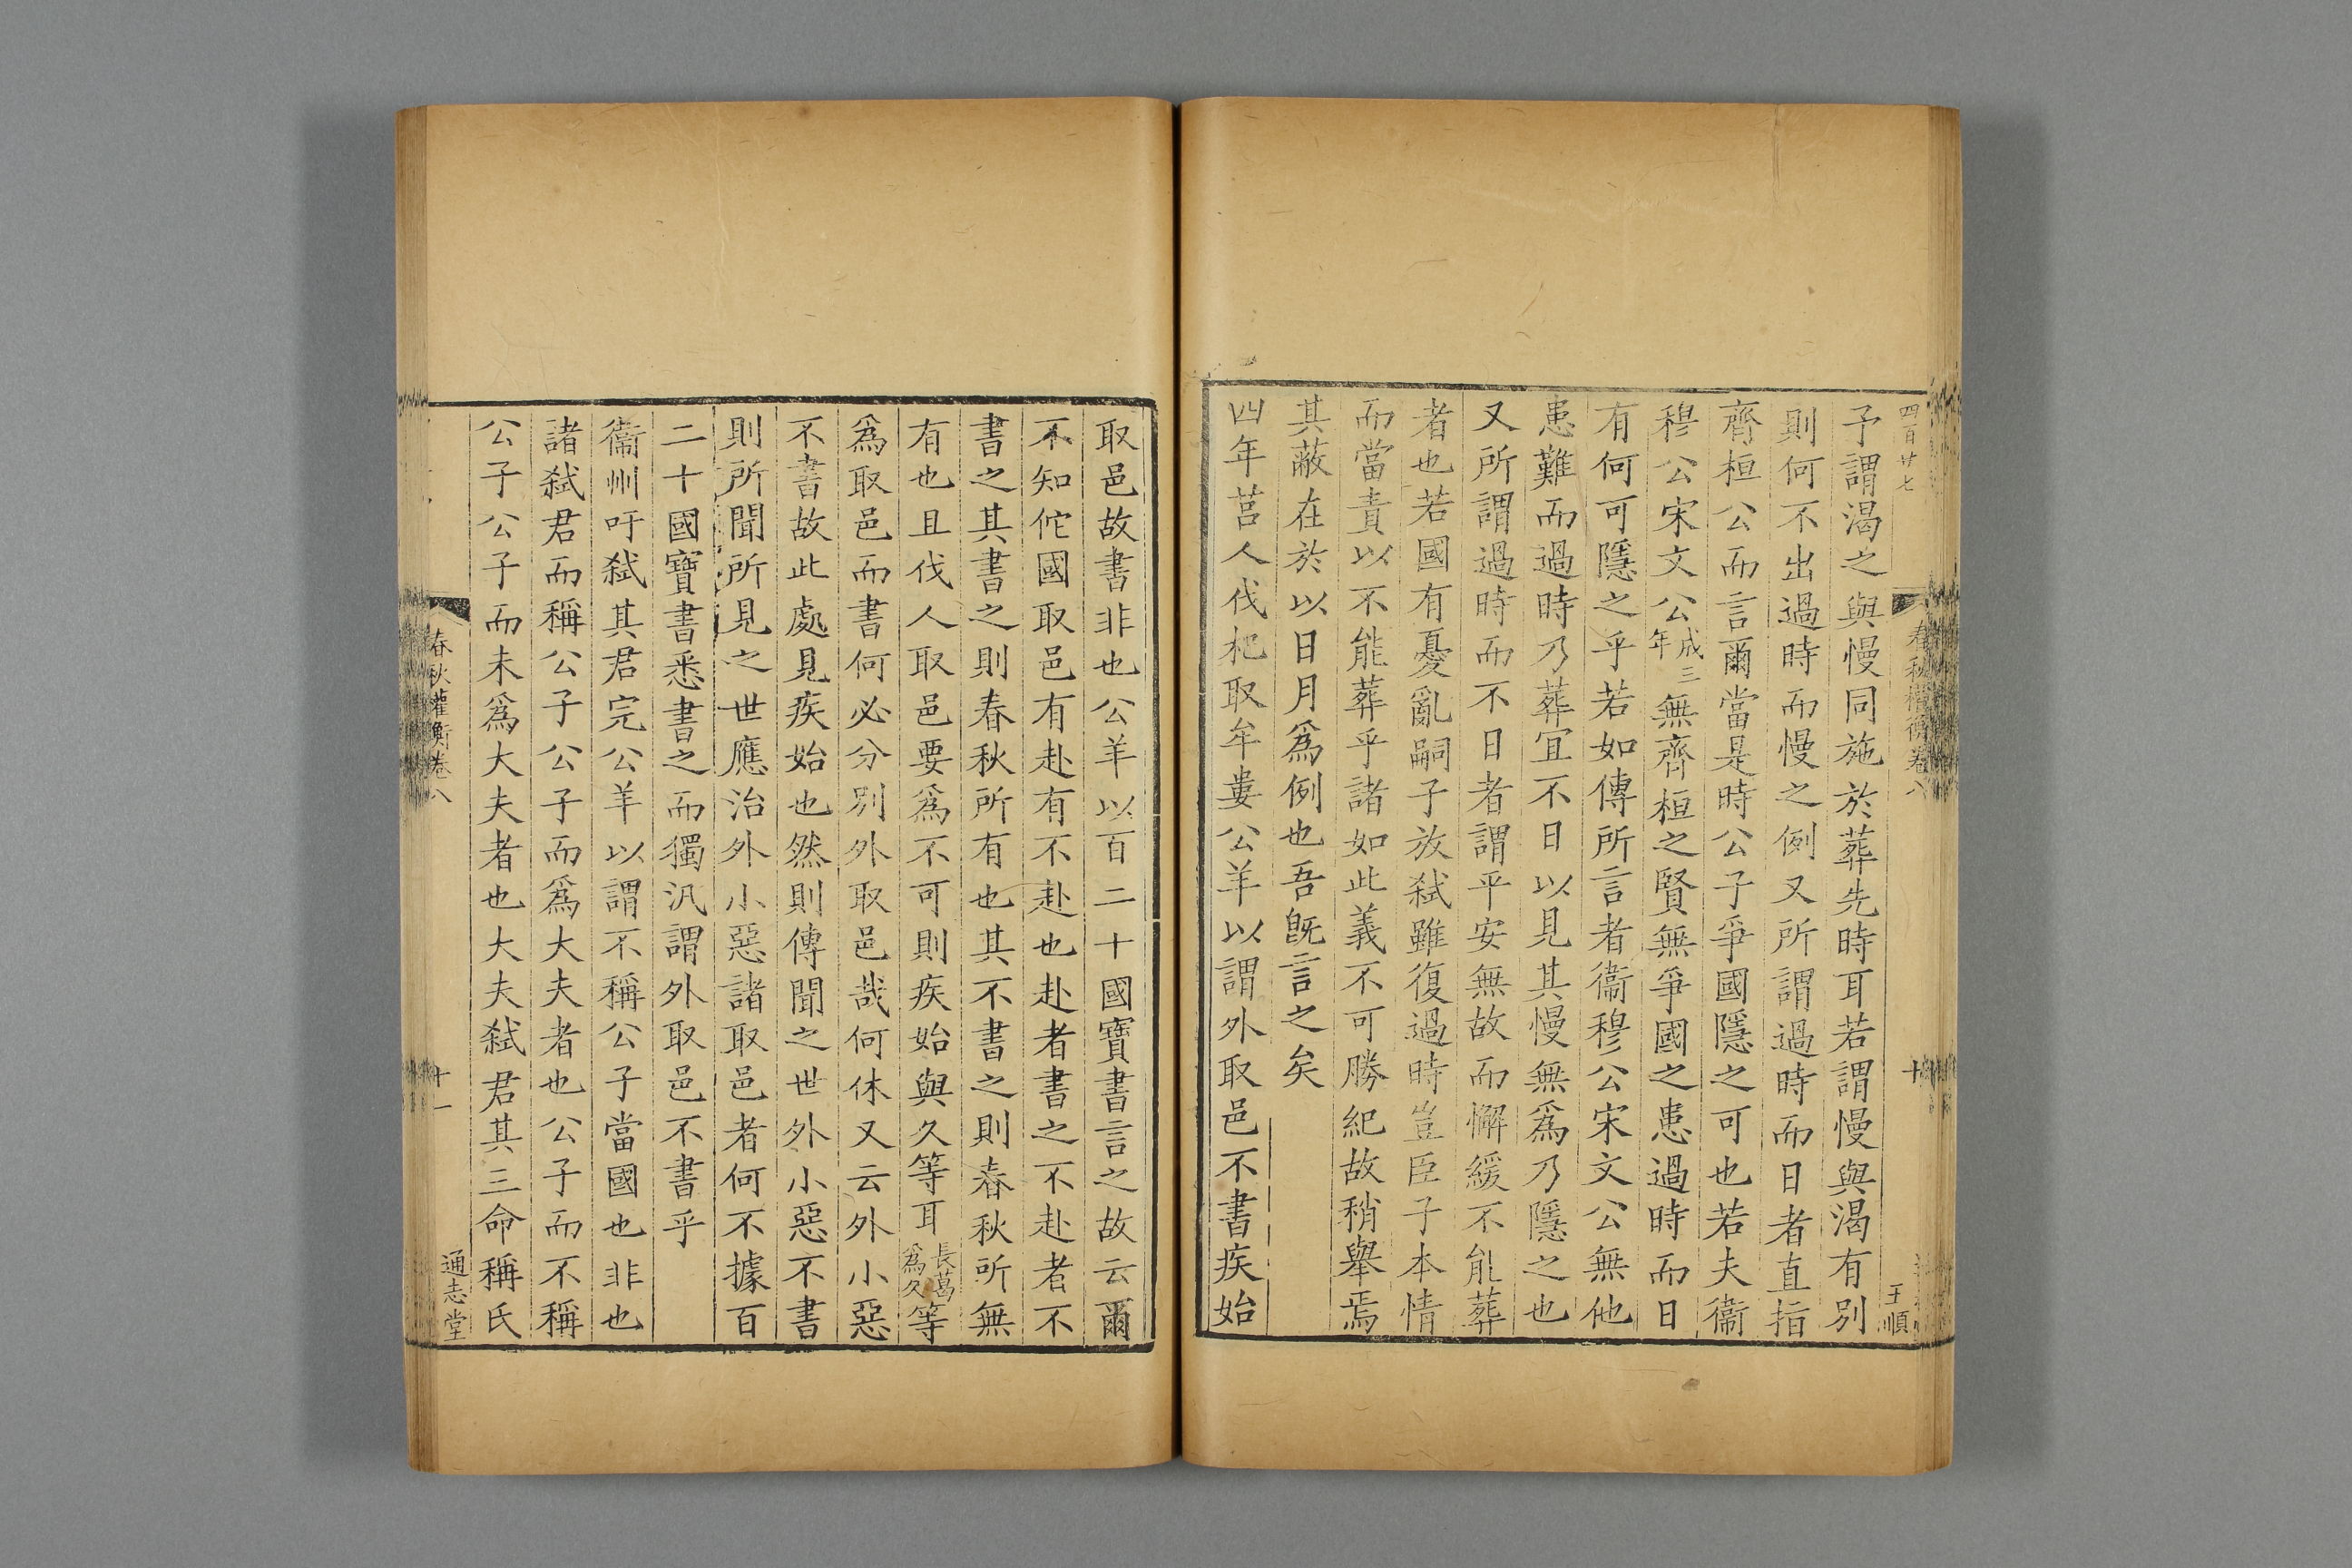 四百廿七
春秋權衡卷八
十
王順
予謂渴之與慢同施於葬先時耳若謂慢與渴有別
則何不出過時而慢之例又所謂過時而日者直指
齊桓公而言爾當是時公子爭國隱之可也若夫衞
穆公宋文公成三年無齊桓之賢無爭國之患過時而日
有何可隱之乎若如傳所言者衞穆公宋文公無他
患難而過時乃葬宜不日以見其慢無爲乃隱之也
又所謂過時而不日者謂平安無故而懈緩不能葬
者也若國有憂亂嗣子放弑雖復過時豈臣子本情
而當責以不能葬乎諸如此義不可勝紀故稍舉焉
其蔽在於以日月爲例也吾旣言之矣
四年莒人伐杞取牟婁公羊以謂外取邑不書疾始
取邑故書非也公羊以百二十國寶書言之故云爾
不知佗國取邑有赴有不赴也赴者書之不赴者不
書之其書之則春秋所有也其不書之則春秋所無
有也且伐人取邑要爲不可則疾始與久等耳長葛爲久等
爲取邑而書何必分別外取邑哉何休又云外小惡
不書故此處見疾始也然則傳聞之世外小惡不書
則所聞所見之世應治外小惡諸取邑者何不據百
二十國寶書悉書之而獨汎謂外取邑不書乎
衞州吁弑其君完公羊以謂不稱公子當國也非也
諸弑君而稱公子公子而爲大夫者也公子而不稱
公子公子而未爲大夫者也大夫弑君其三命稱氏
春秋權衡卷八
十一
通志堂